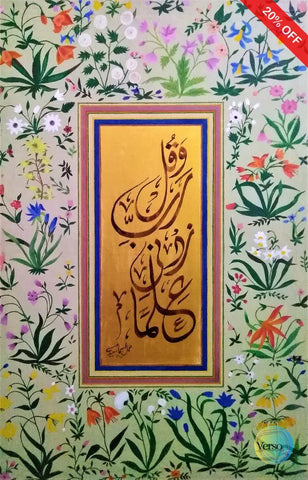 20% OFF
وقل
رب
زدني
علما
Verso